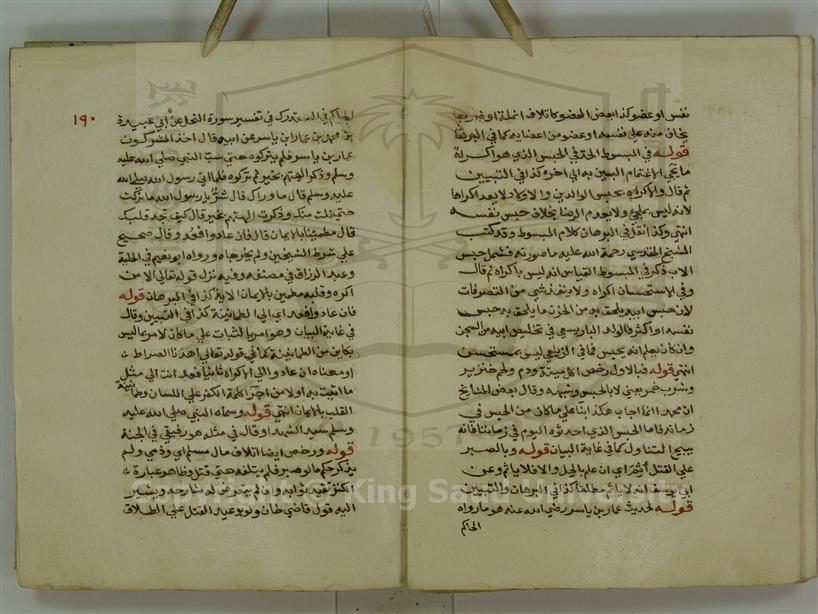 نفس او عضو كذا بعض العضو كاتلاف انملة او ضرب
يخاف منه على نفسه او عضو من اعضايه كما في البرهان
قوله في المبسوط الحد في الحبس الذي هو اكراه
ما يجي الاغتمام البين به الى اخره وكذا في التبيين
ثم قال والاكراه بحبس الوالدين والاولاد لا يعد اكراها
لانه ليس بملجئ ولا يعدم الرضا بخلاف حبس نفسه
انتهى وكذا نقل في البرهان كلام المبسوط وقد كتب
الشيخ المقدسي رحمة الله عليه ما صورته فشمل حبس
الاب ذكر في المبسوط القياس انه ليس باكراه ثم قال
وفي الاستحسان اكراه ولا ينفذ شي من التصرفات
لان حبس ابيه يلحق به من الحزن ما يلحق به حبس
نفسه او اكثر فالولد البار يسعى في تخليص ابيه من السجن
وان كان يعلم انه يحبس فما في الزيلعي ليس بمستحسن
انتهى قوله فبالاول رخص اكل ميتة ودم ولحم خنزير
وشرب خمر يعني لا بالحبس وشبهه وقال بعض المشايخ
ان محمدا انما اجاب هكذا بناء على ما كان من الحبس في
زمانه فاما الحبس الذي احدثوه اليوم في زماننا فانه
يبيح التناول كما في غاية البيان قوله وبالصبر
على القتل اثم اي ان علم الحل والا فلا ياثم وعن
ابي يوسف انه لا ياثم مطلقا كذا في البرهان والتبيين
قوله لحديث عمار بن ياسر رضي الله عنه هو ما رواه
الحاكم
١٩٠
الحاكم في المستدرك في تفسير سورة النحل عن ابي عبيدة
بن محمد بن عمار بن ياسر عن ابيه قال اخذ المشركون
عمار بن ياسر فلم يتركوه حتى سب النبي صلى الله عليه
وسلم وذكر الهتهم بخير ثم تركوه فلما اتى رسول الله صلى الله
عليه وسلم قال ما وراك قال شر يا رسول الله ما تركت
حتى نلت منك وذكرت الهتهم بخير قال كيف تجد قلبك
قال مطمئنا بالايمان قال فان عادوا فعد وقال صحيح
على شرط الشيخين ولم يخرجاه ورواه ابو نعيم في الحلية
وعبد الرزاق في مصنفه وفيه نزل قوله تعالى الا من
اكره وقلبه مطمئن بالايمان الاية كذا في البرهان قوله
فان عادوا فعد اي الى الطمانينة كذا في التبيين وقال
في غاية البيان وهو امر بالثبات على ما كان لا امر بما ليس
بكاين من الطمانينة كما في قوله تعالى اهدنا الصراط
او معناه ان عادوا الى الاكراه ثانيا فعد انت الى مثل
ما اتيت به اولا من اجراء كلمة الكفر على اللسان وطمانينة
القلب بالايمان انتهى قوله وسماه النبي صلى الله عليه
وسلم سيد الشهداء وقال في مثله هو رفيقي في الجنة
قوله ورخص ايضا اتلاف مال مسلم اي وذمي ولم
يذكر حكم ما لو صبر فلم يتلفه حتى قتل وظاهر عبارة
الكنز تفيد ثوابه وان لم يتعرض له شارحه ويشير
اليه قول قاضي خان ولو بوعيد القتل على الطلاق